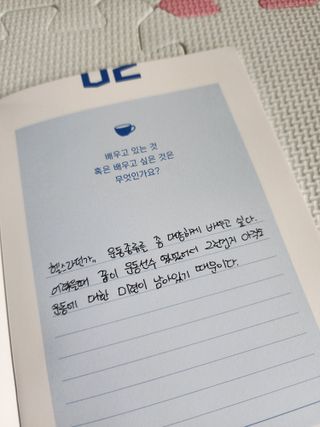 배우고 있는 것
혹은 배우고 싶은 것은
무엇인가요?
헬스라던가.. 운동종류를 좀 다양하게 배우고 싶다.
어렸을때 꿈이 운동선수 였어서 그런지 아직도
운동에 대한 미련이 남아있기 때문이다.